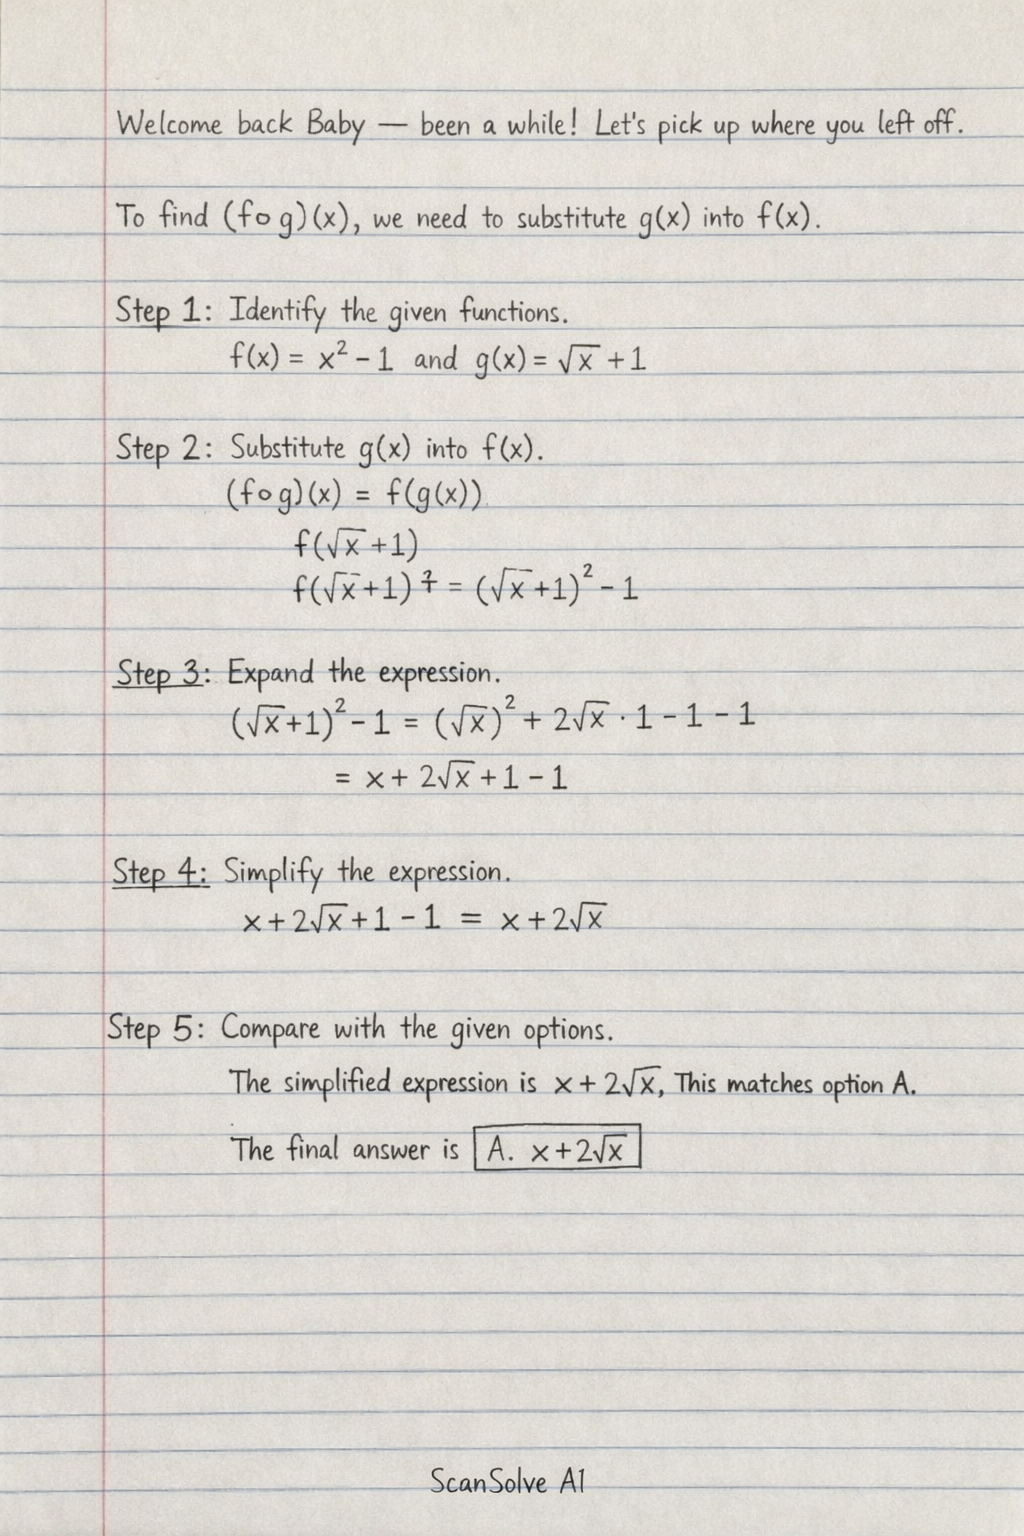 Welcome back Baby — been a while! Let's pick up where you left off.
To find (f∘g)(x), we need to substitute g(x) into f(x).
Step 1: Identify the given functions.
f(x) = x² - 1 and g(x) = √x + 1
Step 2: Substitute g(x) into f(x).
(f∘g)(x) = f(g(x))
f(√x + 1)
f(√x + 1) = (√x + 1)² - 1
Step 3: Expand the expression.
(√x + 1)² - 1 = (√x)² + 2√x · 1 - 1 - 1
= x + 2√x + 1 - 1
Step 4: Simplify the expression.
x + 2√x + 1 - 1 = x + 2√x
Step 5: Compare with the given options.
The simplified expression is x + 2√x, This matches option A.
The final answer is A. x + 2√x
ScanSolve A1